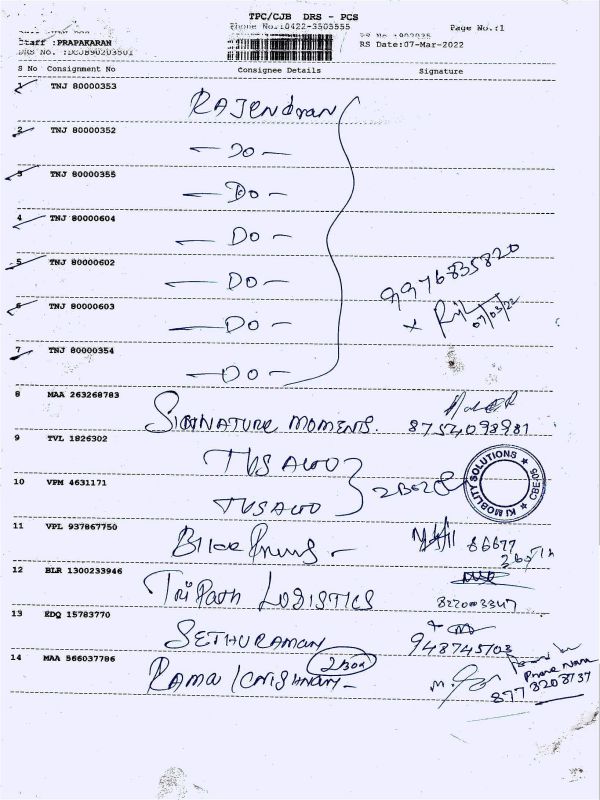 TPC/CJB DRS - PCS
Phone No.:0422-3505555
Page No.:1
Staff :PRAPAKARAN
DRS No. :DCJB90203501
RS Date:07-Mar-2022
S No Consignment No Consignee Details Signature
1 TNJ 80000353
RAJENdran
2 TNJ 80000352
— DO —
3 TNJ 80000355
— Do —
4 TNJ 80000604
— Do —
5 TNJ 80000602
— Do —
9976835820
6 TNJ 80000603
— Do —
07/03/22
7 TNJ 80000354
— Do —
8 MAA 263268783
SIGNATURE MOMENTS.
8754098981
9 TVL 1826302
TVS AUTO
KI MOBILITY SOLUTIONS
CBE-05
10 VPM 4631171
TVS AUTO
11 VPL 937867750
86677
12 BLR 1300233946
TriPath LOGISTICS
13 EDQ 15783770
SETHURAMAN
948745103
14 MAA 566037786
RAMA KRISHNAN —